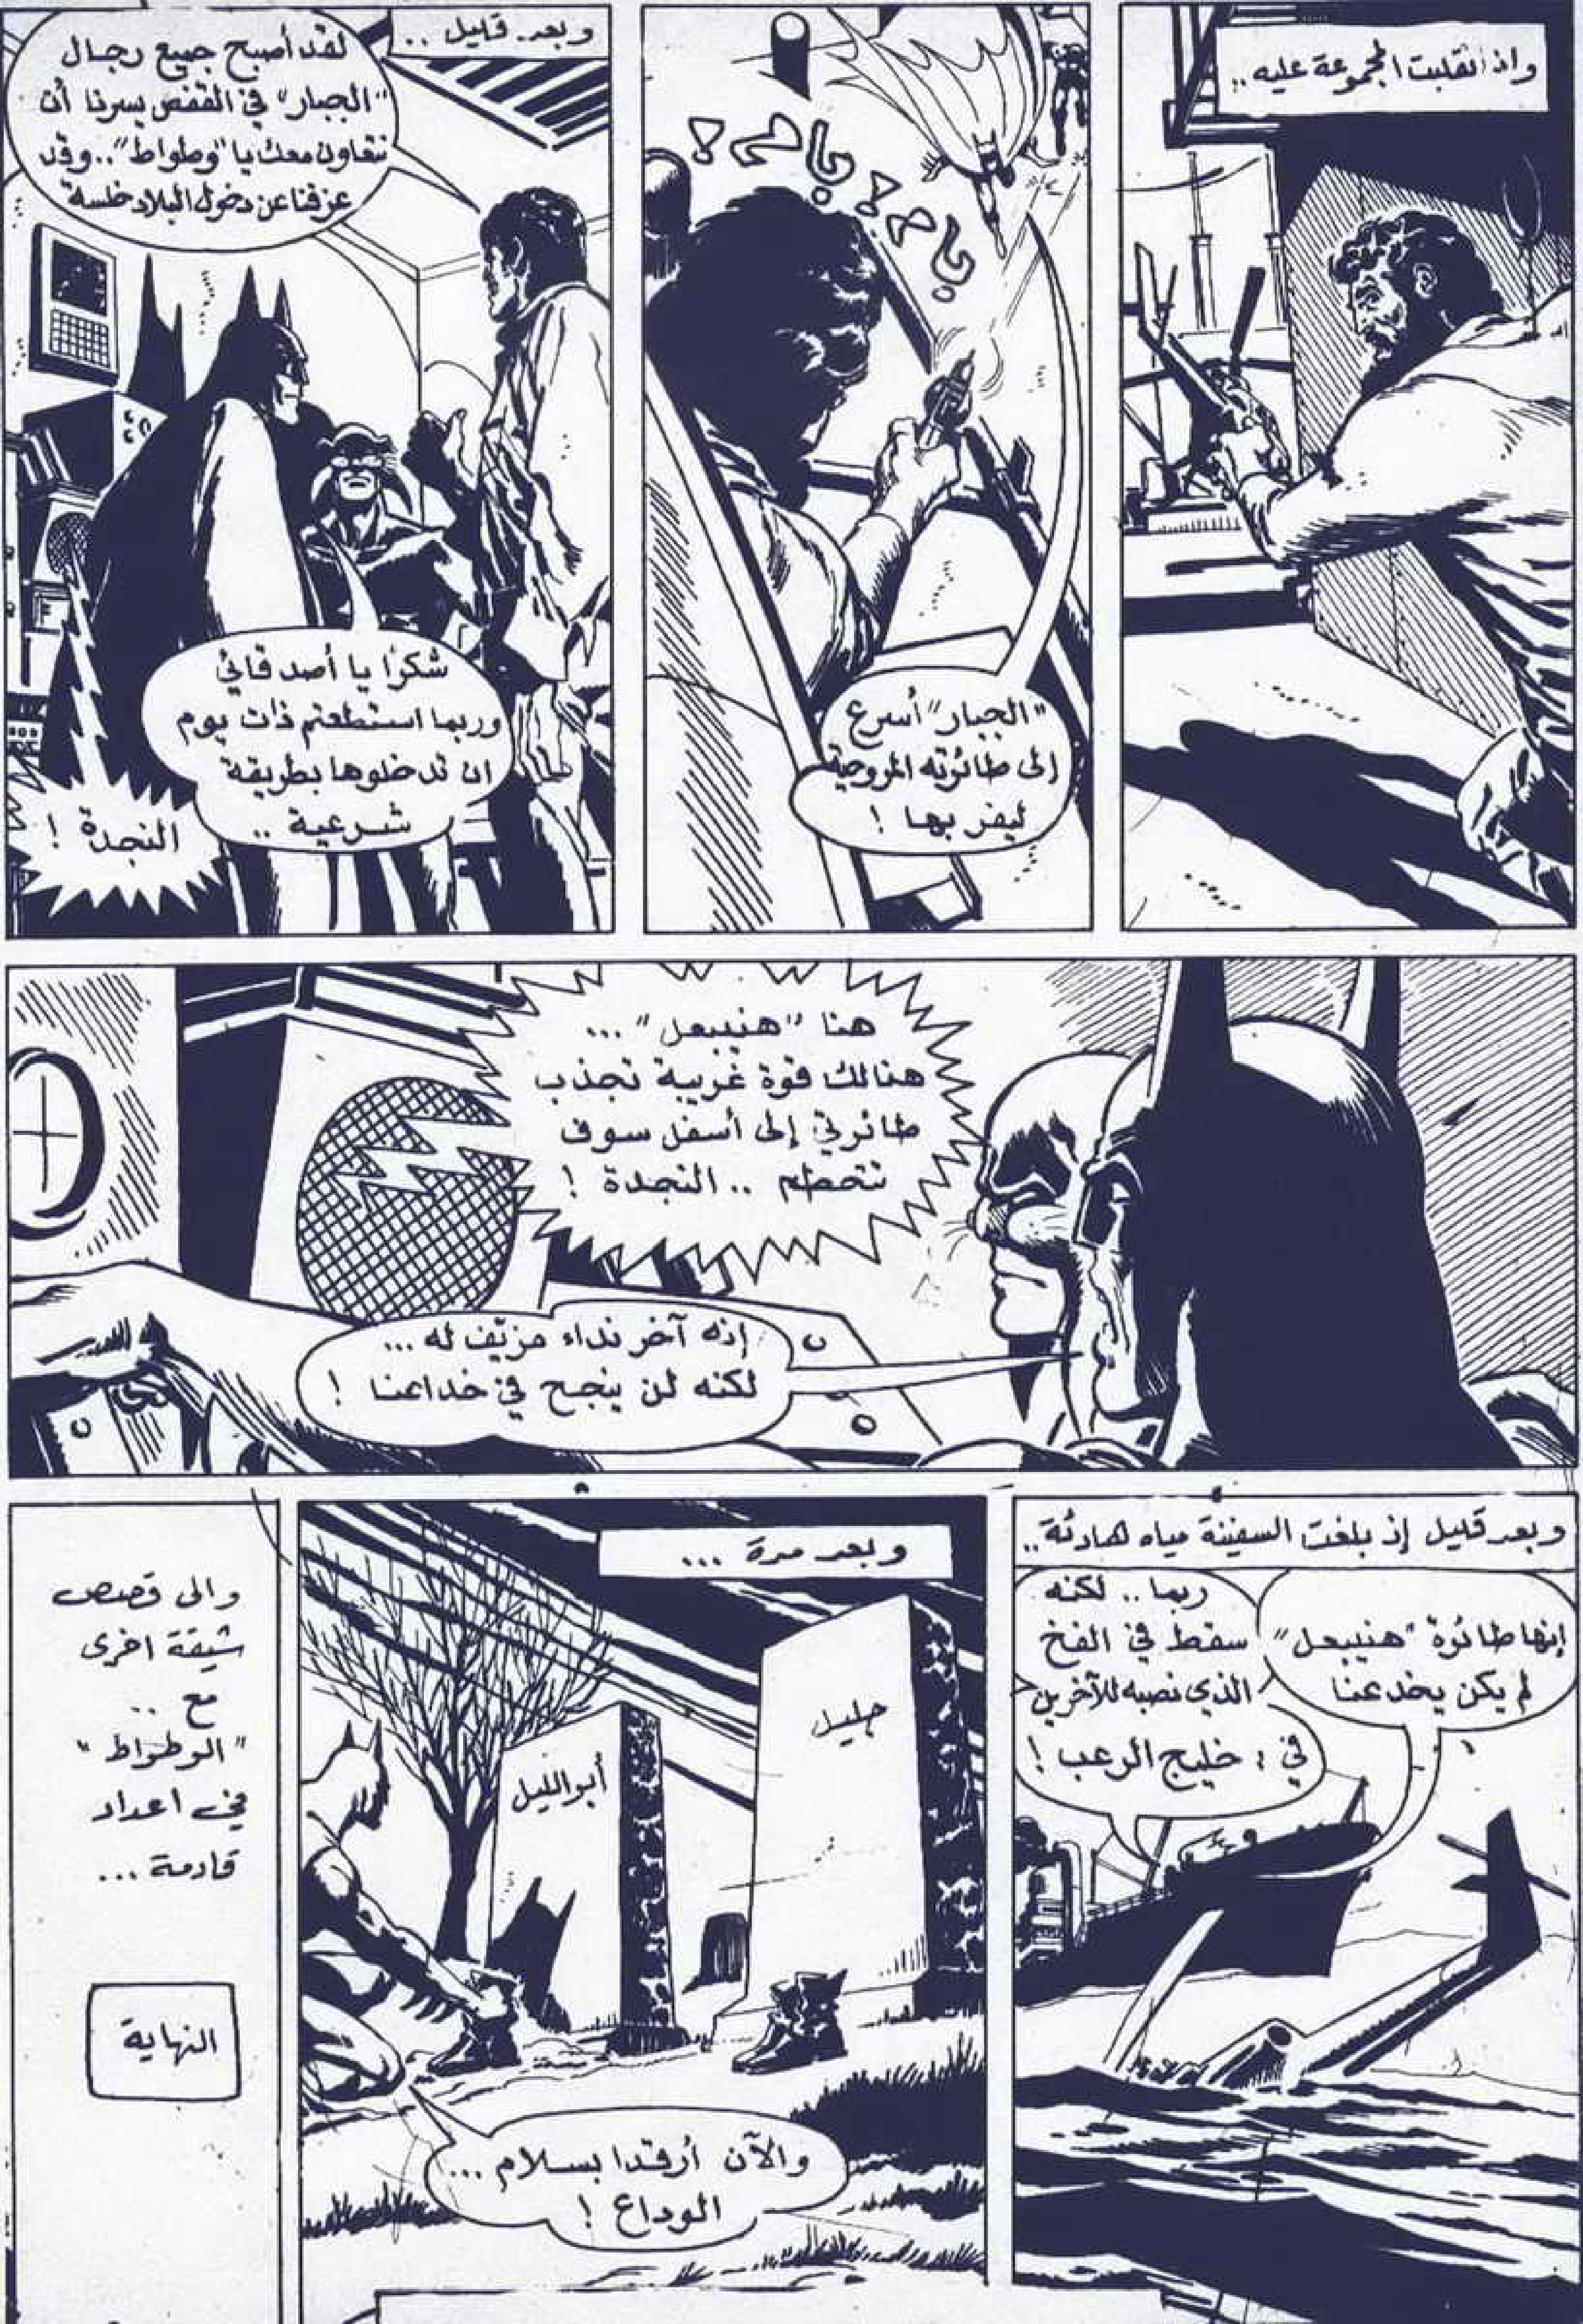 واذ انقلبت المجموعة عليه..
بام! بام! بام!
"الجبار" أسرع
إلى طائرته المروحية
ليفر بها !
وبعد قليل ..
لقد أصبح جميع رجال
"الجبار" في القفص يسرنا أن
نتعاون معك يا "وطواط".. وقد
عزفنا عن دخول البلاد خلسة
شكرًا يا أصدقائي
وربما استطعتم ذات يوم
ان تدخلوها بطريقة
شرعية ..
النجدة !
هنا "هنيبعل" ...
هنالك قوة غريبة تجذب
طائرتي إلى أسفل سوف
تتحطم .. النجدة !
إنه آخر نداء مزيّف له ...
لكنه لن ينجح في خداعنا !
وبعد قليل إذ بلغت السفينة مياه هادئة ..
إنها طائرة "هنيبعل"
لم يكن يخدعنا
ربما .. لكنه
سقط في الفخ
الذي نصبه للآخرين
في : خليج الرعب !
وبعد مدة ...
جليل
أبو الليل
والآن أرقدا بسلام ...
الوداع !
والى قصص
شيقة اخرى
مع ..
"الوطواط"
في اعداد
قادمة ...
النهاية